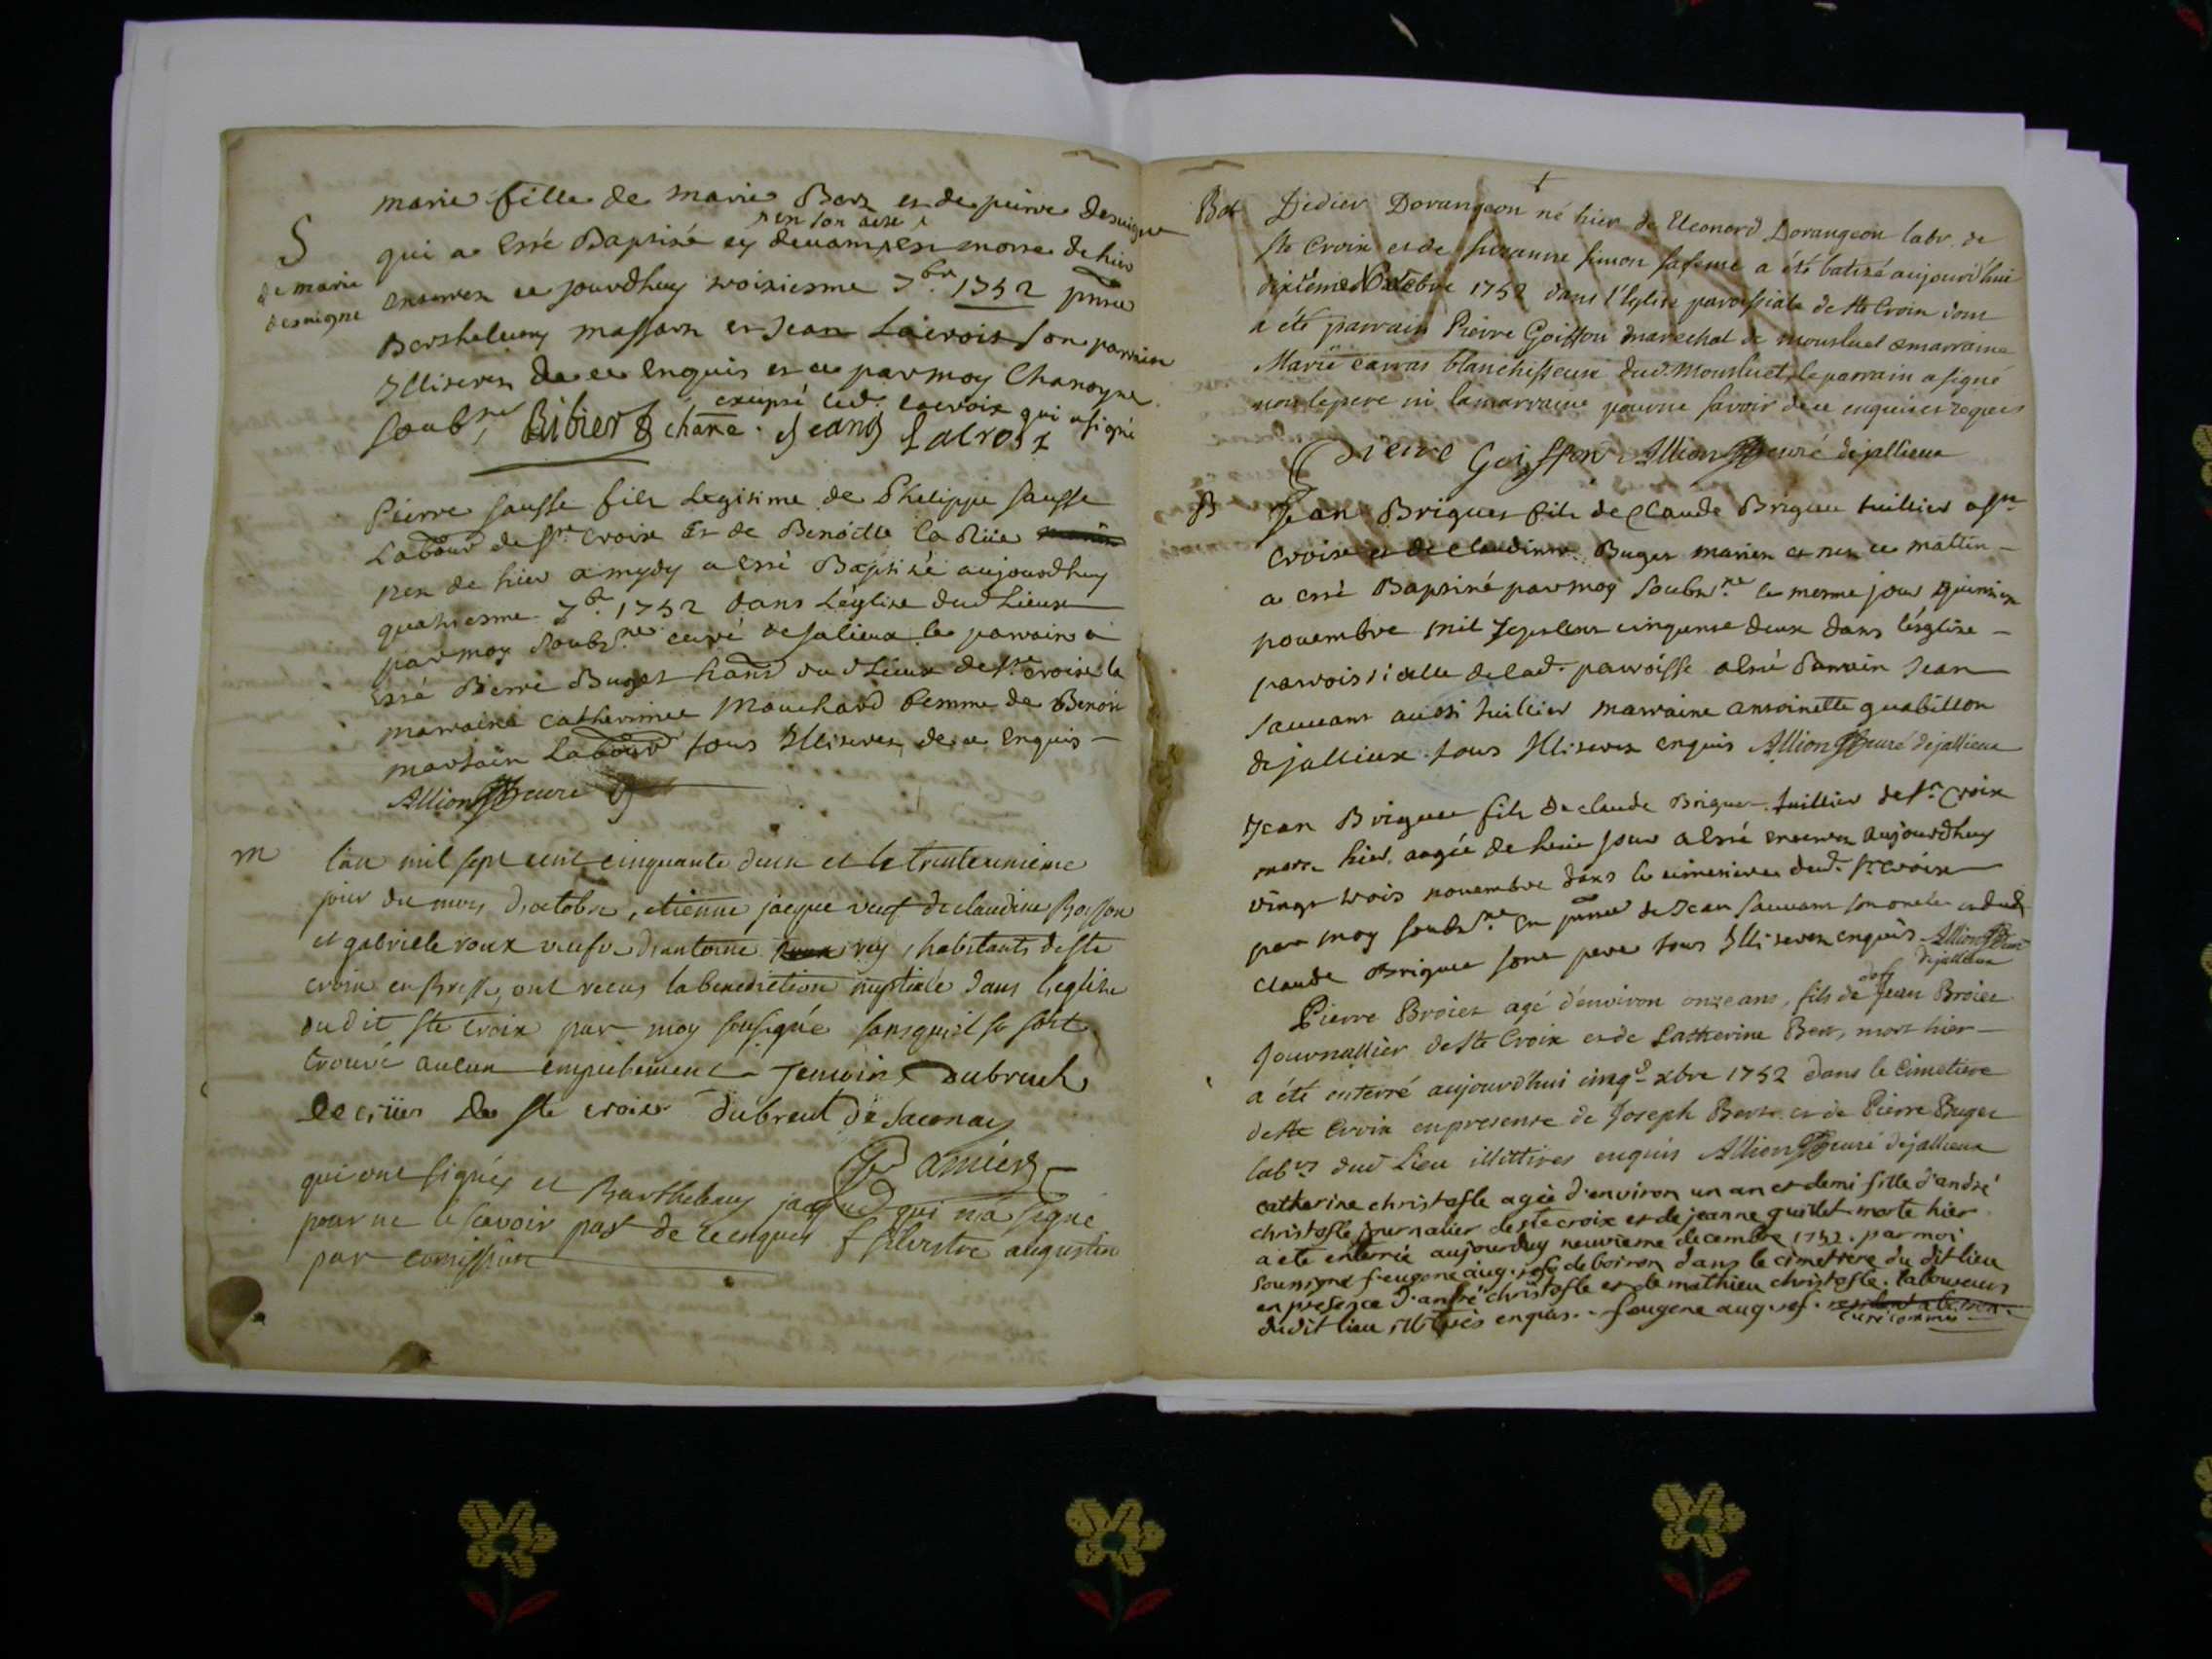 marie fille de marie Berz et de pierre desuigne
S
de marie
desuigne
qui a esté Baptisé cy devam est morte de hier
enterrer ce jourdhuy troisiesme 7br 1752 pnce
Barthelemy massarn et Jean Lacroix son parrin
Illiteres de ce Enquis et ce par moy Chanoyne
excepté led. lacroix qui asigné
soubne Bibier chane. Jean Lacroix
Pierre sausse fils Legitime de Philippe sausse
Labour de ste croix Et de Benoitte la Rüe
nez de hier a mydy a esté Baptisé aujourdhuy
quatriesme 7br 1752 dans L'église dud Lieux
par moy soubzne curé de Jalieux le parrain a
Esté Pierre Buget dud Lieux de ste croix la
marraine catherinne Mouchard femme de Benoit
martain Labour tous Illiteres de ce Enquis
Allion curé
m
l'an mil sept cent cinquante deux et le trenteunième
jour du mois d'octobre, etienne jacque veuf de claudine
et gabrielle roux veufve d'antoine rey, habitants de ste
croix en Bresse, ont recus la benediction nuptiale dans l'eglise
dudit ste croix par moy sousigné sans quil se soit
trouvé aucun empechement Temoins Dubreul
De ste croix dubreul de Saconay
Ramier
qui ont signés et Barthelemy jacque qui n'a signé
pour ne le scavoir pas de ce enquis f silvestre augustin
par comission
Bat Didier Dorangeon né hier de Eleonord Dorangeon labr. de
ste Croix et de Suzanne simon safeme a été batizé aujourd'hui
dixième octobre 1752 dans l'Eglise paroissiale de ste Croix dont
a été parrain Pierre Goiffon marechal de monluel et marraine
Marie carras blanchisseuse dud. Monluel, le parrain a signé
non le pere ni la marraine pour ne savoir de ce enquis et requis
Pierre Goiffon Allion curé de jallieux
B Jean Briguet fils de Claude Briguet tuillier a ste
croix et de claudinne Buget mariez et nez ce mattin
a esté Baptisé par moy soubzne le mesme jour
novembre mil septcent cinquante deux dans l'églize
parroissialle de lad. parroisse a esté Parrain Jean
sauvant aussi tuillier marraine antoinette guabillon
de jallieux tous Illiteres enquis Allion curé de jallieux
Jean Briguet fils de claude Briguet tuillier de ste Croix
mort hier, aagée de huit jour a esté enterrer aujourdhuy
vingt trois novembre dans le cimetiere dud. ste croix
par moy soubzne En pnce de Jean sauvant son oncle et dud
Claude Briguet sont pere tous Illiteres enquis Allion curé
de jallieux
Pierre Broiet agé d'environ onze ans, fils de Jean Broiet
Journallier de ste Croix et de Catherine Berr, mort hier
a été enterré aujourd'hui cinqe xbre 1752 dans le Cimetiere
de ste Croix en presence de Joseph Berr et de Pierre Buget
labrs dud Lieu illittires enquis Allion curé de jallieux
catherine christofle agée d'environ un an et demi fille d'andré
christofle journalier de ste croix et de jeanne guillet morte hier
a ete enterrée aujourduy neuvieme decembre 1752. par moi
soussigné f. eugene aug. ref. de boiron dans le cimetiere du dit lieu
en presence d'andré christofle et de mathieu christofle. laboureurs
du dit lieu illitirés enquis. f eugene aug. ref.
curé commis